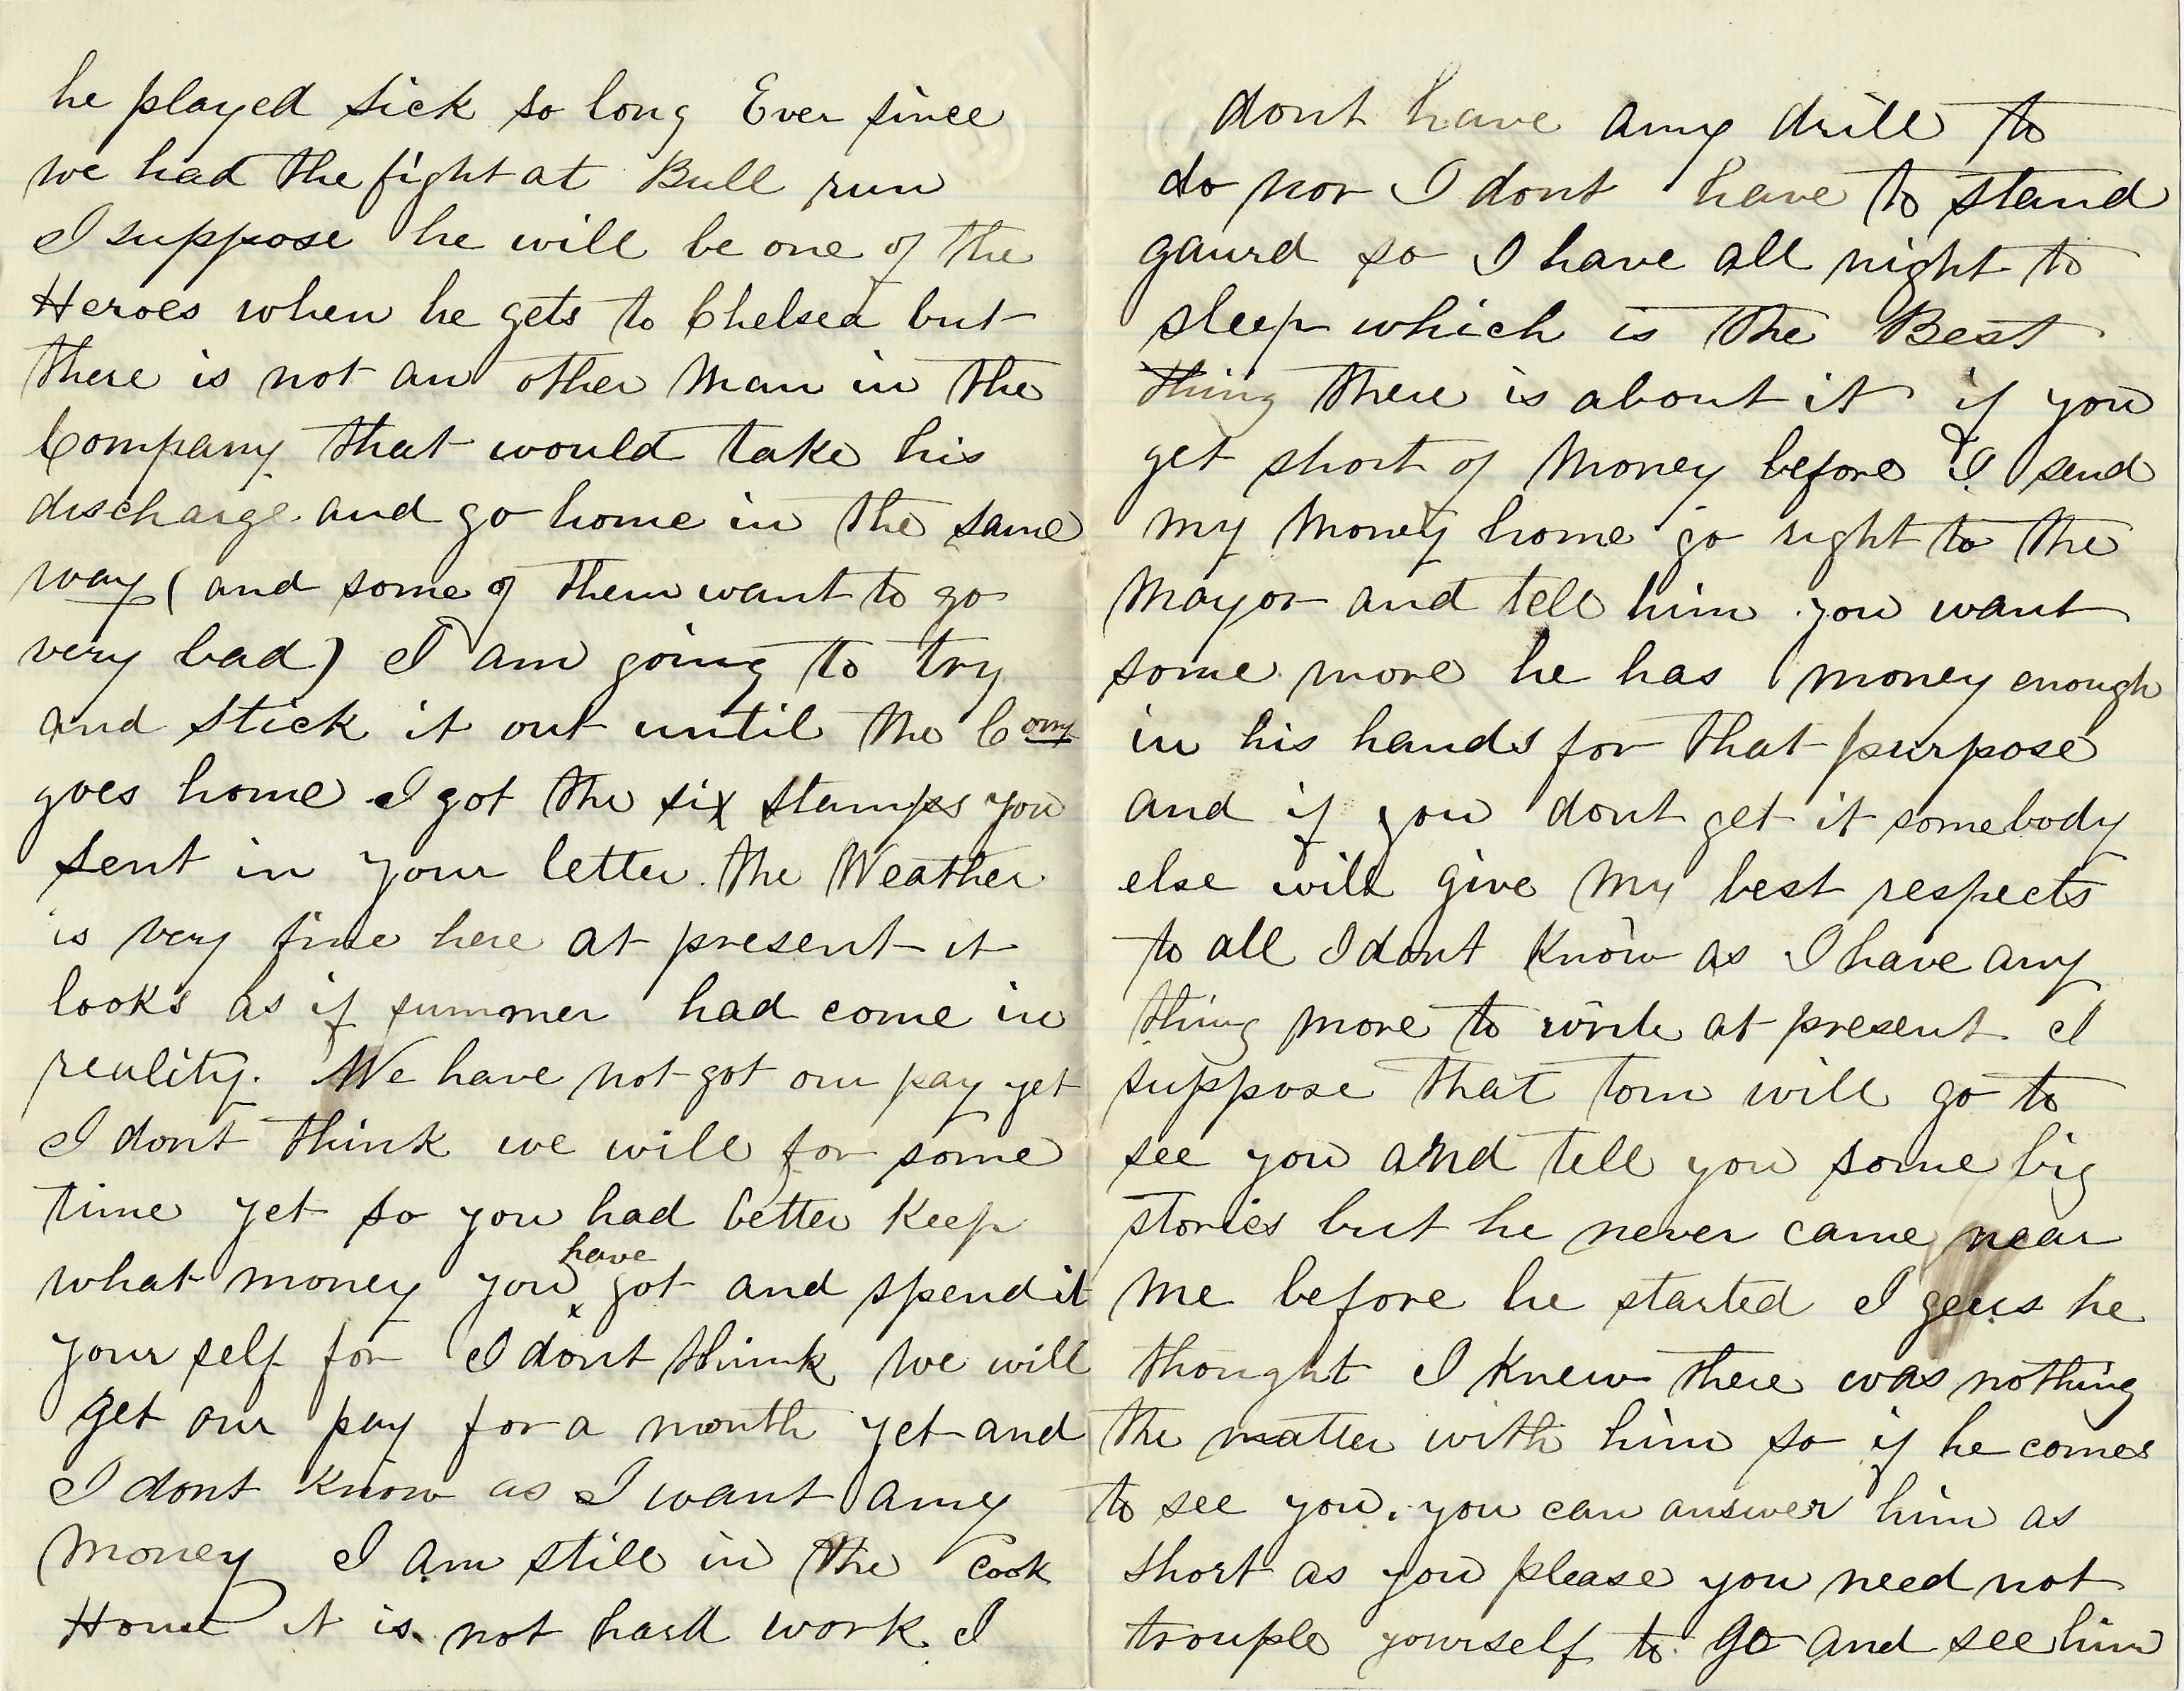 he played sick so long Ever since
we had the fight at Bull run
I suppose he will be one of the
Heroes when he gets to Chelsea but
there is not an other man in the
Company that would take his
discharge and go home in the same
way ( and some of them want to go
very bad) I am going to try
and stick it out until the Comy
goes home I got the six stamps you
sent in your letter. the Weather
is very fine here at present it
looks as if summer had come in
reality. We have not got our pay yet
I dont think we will for some
time yet so you had better keep
what money you have got and spend it
your self for I dont think we will
get our pay for a month yet and
I dont know as I want any
money I am still in the cook
House it is not hard work. I
dont have any drill to
do nor I dont have to stand
gaurd so I have all night to
sleep which is the Best
thing there is about it if you
get short of money before I send
my money home go right to the
Mayor and tell him you want
some more he has money enough
in his hands for that purpose
and if you dont get it somebody
else will give my best respects
to all I dont know as I have any
thing more to write at present I
suppose that tom will go to
see you and tell you some big
stories but he never came near
me before he started I geus he
thought I knew there was nothing
the matter with him so if he comes
to see you. you can answer him as
short as you please you need not
trouple yourself to go and see him